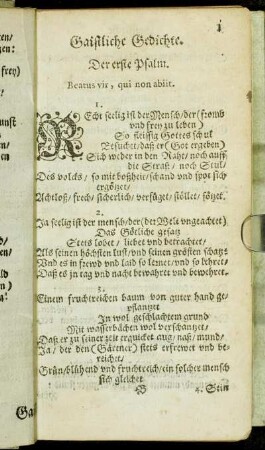 1
Gaistliche Gedichte.
Der erste Psalm.
Beatus vir, qui non abiit.
1.
REcht seelig ist der Mensch/der (fromb
vnd frey zu leben)
So fleissig Gottes schul
Besuchet/daß er (Got ergeben)
Sich weder in den Raht/noch auff
die Straß/noch Stul/
Des volcks/so mit boßheit/schand vnd spot sich
ergötzet/
Achtloß/frech/sicherlich/verfüget/stöllet/sötzet.
2.
Ja seelig ist der mensch/der (der Welt vngeachtet)
Das Götliche gesatz
Stets lobet/liebet vnd betrachtet/
Als seinen höchsten lust/vnd seinen grösten schatz:
Vnd es in frewd vnd laid so lernet/vnd so lehret/
Daß es zu tag vnd nacht bewahret vnd bewehret.
3.
Einem fruchtreichen baum von guter hand ge-
pflantzet
In wol geschlachtem grund
Mit wasserbächen wol verschantzet/
Daß er zu seiner zeit erquicket aug/naß/mund/
Ja/der den (Gärtner) stets erfrewet vnd be-
reichet/
Grün/blühend vnd fruchtreich/ein solcher mensch
sich gleichet.
B
4. Sein